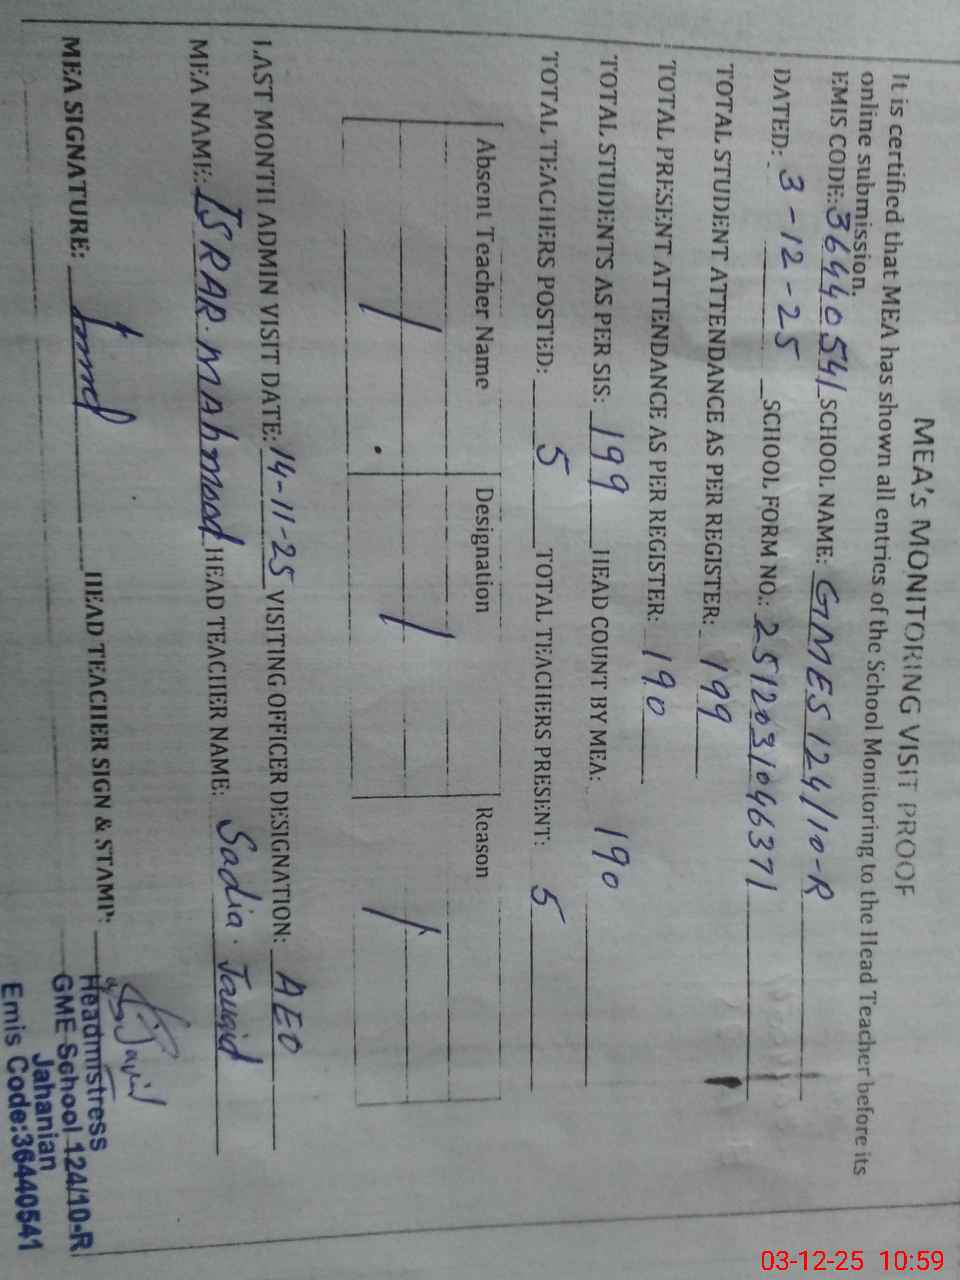 MEA's MONITORING VISIT PROOF
It is certified that MEA has shown all entries of the School Monitoring to the Head Teacher before its
online submission.
EMIS CODE: 36440541 SCHOOL NAME: GMES 124/10-R
DATED: 3-12-25 SCHOOL FORM NO.: 2512031046371
TOTAL STUDENT ATTENDANCE AS PER REGISTER: 199
TOTAL PRESENT ATTENDANCE AS PER REGISTER: 190
TOTAL STUDENTS AS PER SIS: 199 HEAD COUNT BY MEA: 190
TOTAL TEACHERS POSTED: 5 TOTAL TEACHERS PRESENT: 5
Absent Teacher Name Designation Reason
/ / /
LAST MONTH ADMIN VISIT DATE: 14-11-25 VISITING OFFICER DESIGNATION: AEO
MEA NAME: ISRAR. MAhmood HEAD TEACHER NAME: Sadia. Javaid
MEA SIGNATURE: HEAD TEACHER SIGN & STAMP:
Headmistress
GME School 124/10-R
Jahanian
Emis Code:36440541
03-12-25 10:59